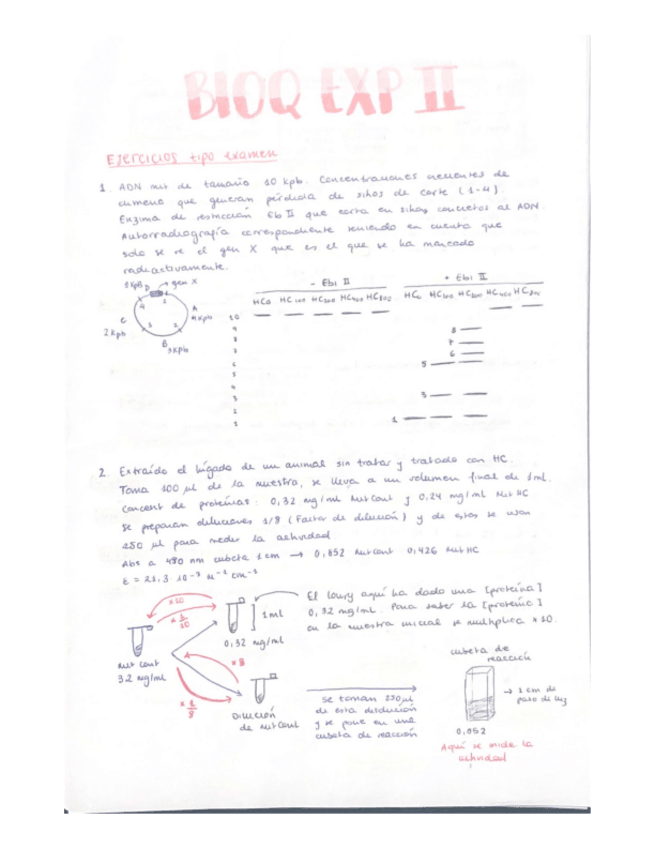 BIOQ EXP II
Ejercicios tipo examen
1. ADN mit de tamaño 10 kpb. Concentraciones crecientes de
cumeno que generan pérdida de sitios de corte (1-4).
Enzima de restricción Eb II que corta en sitios concretos al ADN
Autorradiografía correspondiente teniendo en cuenta que
solo se ve el gen X que es el que se ha marcado
radiactivamente.
D gen X
4 1
A
4 kpb
C
2 kpb
3 2
B
3 kpb
- EbI II
HC0 HC100 HC200 HC400 HC800
+ EbI II
HC0 HC100 HC200 HC400 HC800
10
9
8
7
6
5
4
3
2
1
8
7
6
5
3
1
2. Extraído el hígado de un animal sin tratar y tratado con HC.
Toma 100 µl de la muestra, se lleva a un volumen final de 1 ml.
Concent de proteínas: 0,32 mg/ml Mit Cont y 0,24 mg/ml Mit HC
Se preparan diluciones 1/8 (Factor de dilución) y de estos se usan
250 µl para medir la actividad
Abs a 490 nm cubeta 1 cm → 0,852 Mit Cont 0,426 Mit HC
ε = 21,3 · 10⁻³ M⁻¹ cm⁻¹
x 10
x 1/10
1 ml
0,32 mg/ml
El lowry aquí ha dado una [proteína]
0,32 mg/ml. Para saber la [proteína]
en la muestra inicial se multiplica x 10.
Mit Cont
3,2 mg/ml
x 8
x 1/8
Dilución
de Mit Cont
Se toman 250 µl
de esta disolución
y se pone en una
cubeta de reacción
cubeta de
reacción
→ 1 cm de
paso de luz
0,852
Aquí se mide la
actividad